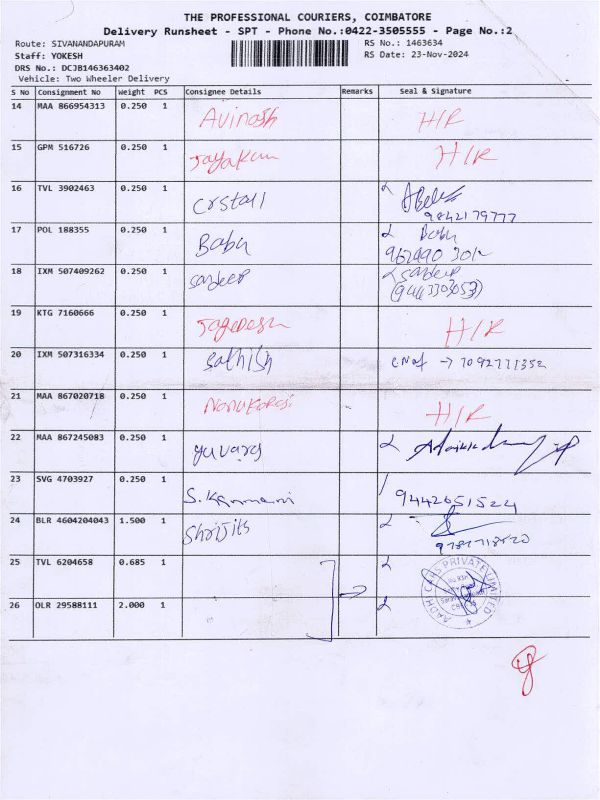 THE PROFESSIONAL COURIERS, COIMBATORE
Delivery Runsheet - SPT - Phone No.:0422-3505555 - Page No.:2
Route: SIVANANDAPURAM RS No.: 1463634
Staff: YOKESH RS Date: 23-Nov-2024
DRS No.: DCJB146363402
Vehicle: Two Wheeler Delivery
S No Consignment No Weight PCS Consignee Details Remarks Seal & Signature
14 MAA 866954313 0.250 1 Avinash H/R
15 GPM 516726 0.250 1 H/R
16 TVL 3902463 0.250 1 Crstall
9842179777
17 POL 188355 0.250 1 Babu Babu
18 IXM 507409262 0.250 1 sardeep sardeep
19 KTG 7160666 0.250 1 H/R
20 IXM 507316334 0.250 1 Sathish → 7092771352
21 MAA 867020718 0.250 1 H/R
22 MAA 867245083 0.250 1 yuvaraj
23 SVG 4703927 0.250 1 S. Kanmani 9442651524
24 BLR 4604204043 1.500 1
25 TVL 6204658 0.685 1
26 OLR 29588111 2.000 1
AADHI CARS PRIVATE LIMITED